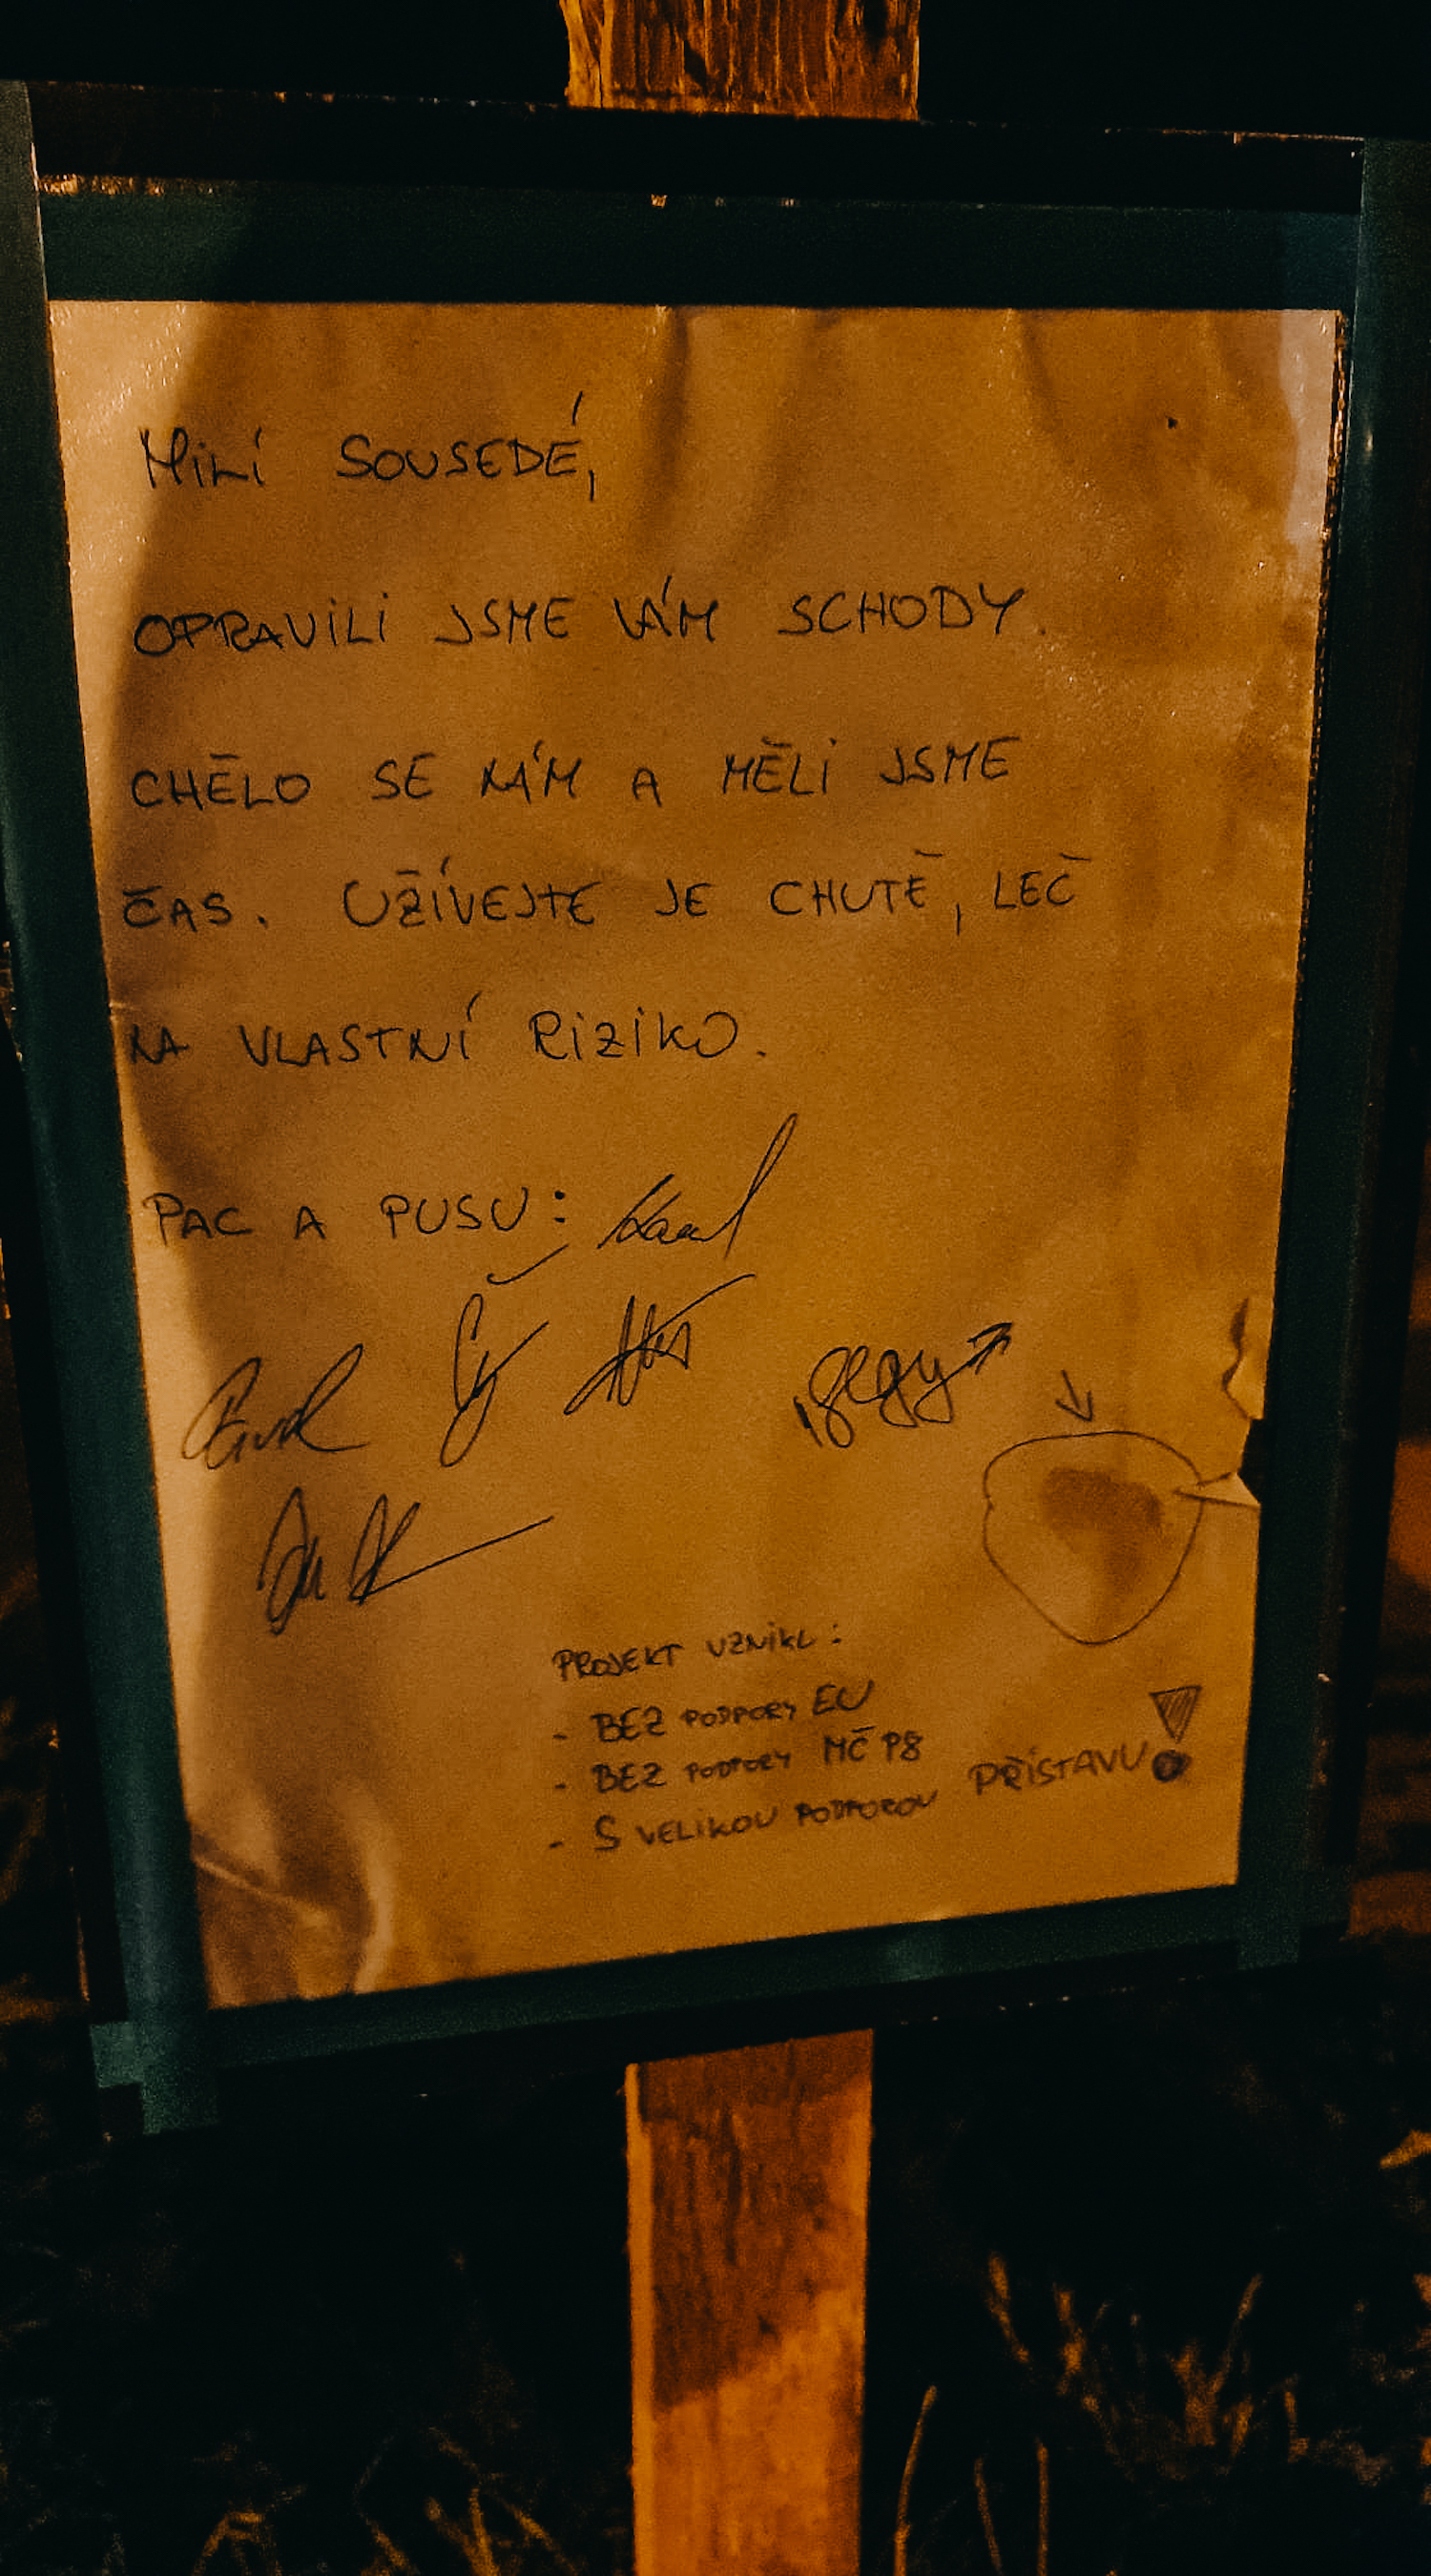 MILÍ SOUSEDÉ,
OPRAVILI JSME VÁM SCHODY.
CHĚLO SE NÁM A MĚLI JSME
ČAS. UŽÍVEJTE JE CHUTĚ, LEČ
NA VLASTNÍ RIZIKO.
PAC A PUSU:
PROJEKT VZNIKL:
- BEZ PODPORY EU
- BEZ PODPORY MČ P8
- S VELIKOU PODPOROU PŘÍSTAVU!